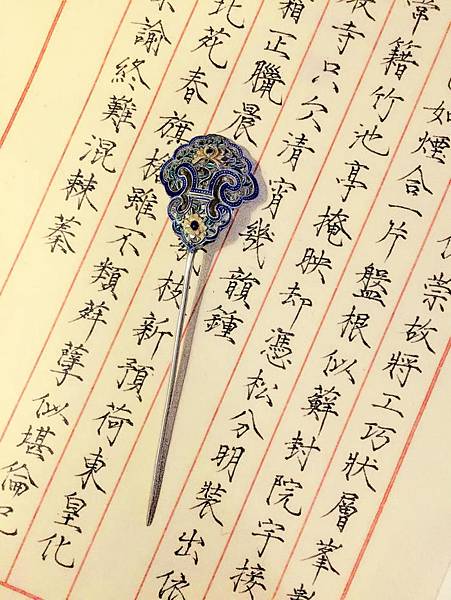 崇故將工巧狀層峯
如煙合一片盤根似蘚封院宇接
常籍竹池亭掩映却憑松分明裝出依
寺只欠清宵幾韻鐘
霜正臘晨枝新預荷東皇化
北花春旗格雖不類薛孽似堪倫已
諭終難混棘蓁